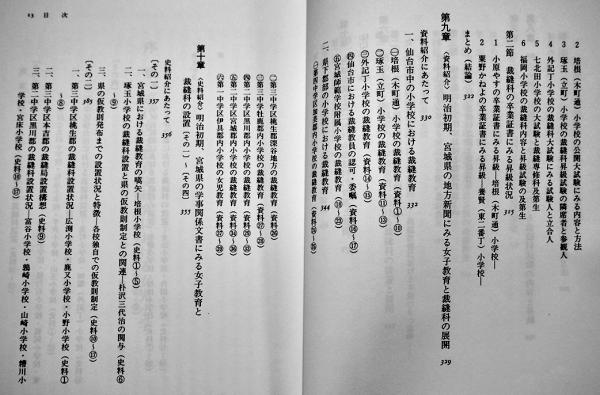 2 培根（木町通）小学校の公開大試験にみる内容と方法
3 琢玉（立町）小学校の裁縫科昇級試験の隣席者と参観人
4 外記丁小学校の裁縫科大試験にみる試験人と立合人
5 七北田小学校の大試験と裁縫専修科及第生
6 福岡小学校の裁縫科内容と昇級試験の及第生
第二節 裁縫科の卒業証書にみる昇級状況 315
1 小原やすの卒業証書にみる昇級―培根（木町通）小学校―
2 粟野かねよの卒業証書にみる昇級―東二番丁小学校―
まとめ（結論） 322
第九章 （資料紹介）明治初期、宮城県の地方新聞にみる女子教育と裁縫科の展開 329
資料紹介にあたって 330
一、仙台市中の小学校における裁縫教育 332
㈠培根（木町通）小学校の裁縫教育（資料①～⑩）
㈡琢玉（立町）小学校の裁縫教育（資料⑪～⑬）
㈢外記丁小学校の裁縫教育（資料⑭～⑮）
㈣仙台市における裁縫教員の認可・委嘱（資料⑯～⑱）
㈤宮城師範学校附属小学校の裁縫教育
二、県下郡部の小学校における裁縫教育 344
13 目次
㈡第二中学区桃生郡深谷地方の裁縫教育
㈢第二中学区牡鹿郡内小学校の裁縫教育
㈣第二中学区黒川郡内小学校の裁縫教育
㈤第二中学区宮城郡内小学校の裁縫教育
㈥第二中学区伊具郡内小学校の女児教育
第十章 （史料紹介）明治初期、宮城県の学事関係文書にみる女子教育と
裁縫科の設置（その一）～（その四） 355
史料紹介にあたって 356
（その一） 357
一、宮城県における裁縫教育の嚆矢―培根小学校（史料①～⑤）
二、琢玉小学校の裁縫科設置と県の仮教則制定との関連―朴沢三代治の関与（史料⑥
～⑨）
三、県の仮教則頒布までの設置状況と特徴―各校独自での仮教則制定（史料⑩～⑰）
（その二） 385
一、第二中学区桃生郡の裁縫科設置状況―広渕小学校・鹿又小学校・小野小学校（史料①
～⑧）
二、第二中学区本吉郡の裁縫局設置構想（史料⑨）
三、第二中学区黒川郡の裁縫科設置状況―富谷小学校・鶉崎小学校・山崎小学校・檜川小
学校・宮床小学校